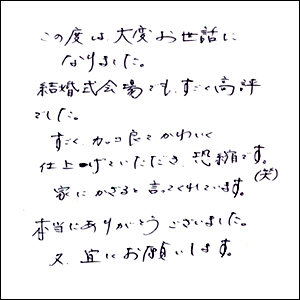 この度は、大変お世話に
なりました。
結婚式会場でも、すごく高評
でした。
すごく、カッコ良くかわいく
仕上げていただき、恐縮です。
(笑)
家にかざると言ってくれています。
本当にありがとうございました。
又、宜しくお願いします。